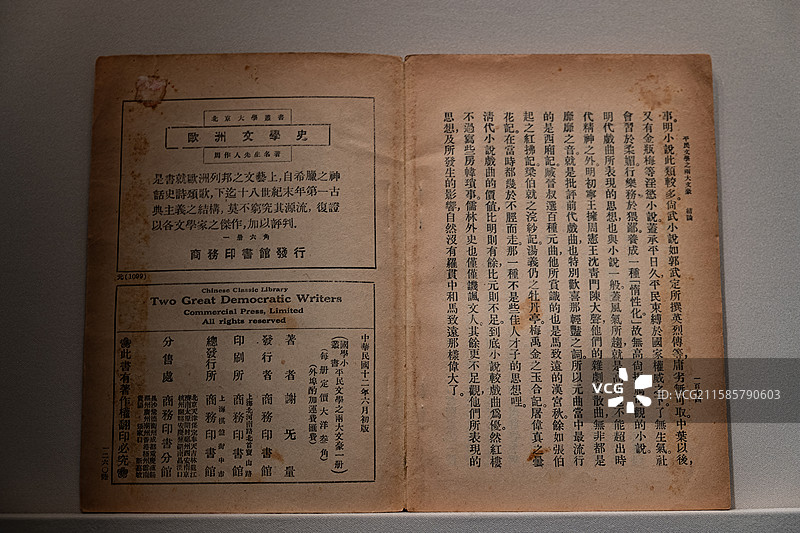 平民文學之兩大文豪 結論
事。明小說此類較多。尚武小說如郭武定所撰英烈傳等庸劣無足取。中葉以後，
又有金瓶梅等淫慾小說。蓋承平日久，平民束縛於國家權威之下，了無生氣，社
會習於柔媚，行樂務於猥鄙，養成一種「惰性化」，故無高尚觀的小說。
明代戲曲所表現的思想，也與小說一般，蓋風氣所趨，就是不能超出時
代精神之外。明初寧王擁周憲王沈青門陳大聲他們的雜劇散曲，無非都是
靡靡之音，就是批評前代戲曲，也特別歡喜那輕豔之詞，所以元曲當中最流行
的是西廂記，臧晉叔選百種元曲，他所賞識的也是馬致遠的漢宮秋。餘如張伯
起之紅拂記，梁伯龍之浣紗記，湯義仍之牡丹亭，梅禹金之玉合記，屠偉真之曇
花記，在當時都幾於不脛而走，那一種不是些佳人才子的思想哩。
清代小說戲曲的價值，比明則有餘，比元則不足，到底小說較戲曲為優，然紅樓
不過寫些房幃瑣事，儒林外史也僅僅譏諷文人，其餘更不足觀，他們所表現的
思想及所發生的影響，自然沒有羅貫中和馬致遠那樣偉大了。
北京大學叢書
歐洲文學史
周作人先生名著
是書就歐洲列邦之文藝上，自希臘之神
話史詩頌歌，下迄十八世紀末年第一古
典主義之結構，莫不窮究其源流，復證
以各文學家之傑作，加以評判。
一冊六角
商務印書館發行
元(1099)
Chinese Classic Library
Two Great Democratic Writers
Commercial Press, Limited
All rights reserved
中華民國十二年六月初版
國學小叢書 平民文學之兩大文豪一冊
(每冊定價大洋叁角)
(外埠酌加運費匯費)
著者 謝无量
發行者 商務印書館
印刷所 上海北河南路北首寶山路 商務印書館
總發行所 上海棋盤街中市 商務印書館
分售處 商務印書分館
此書有著作權翻印必究
VCG
VCG211585790603